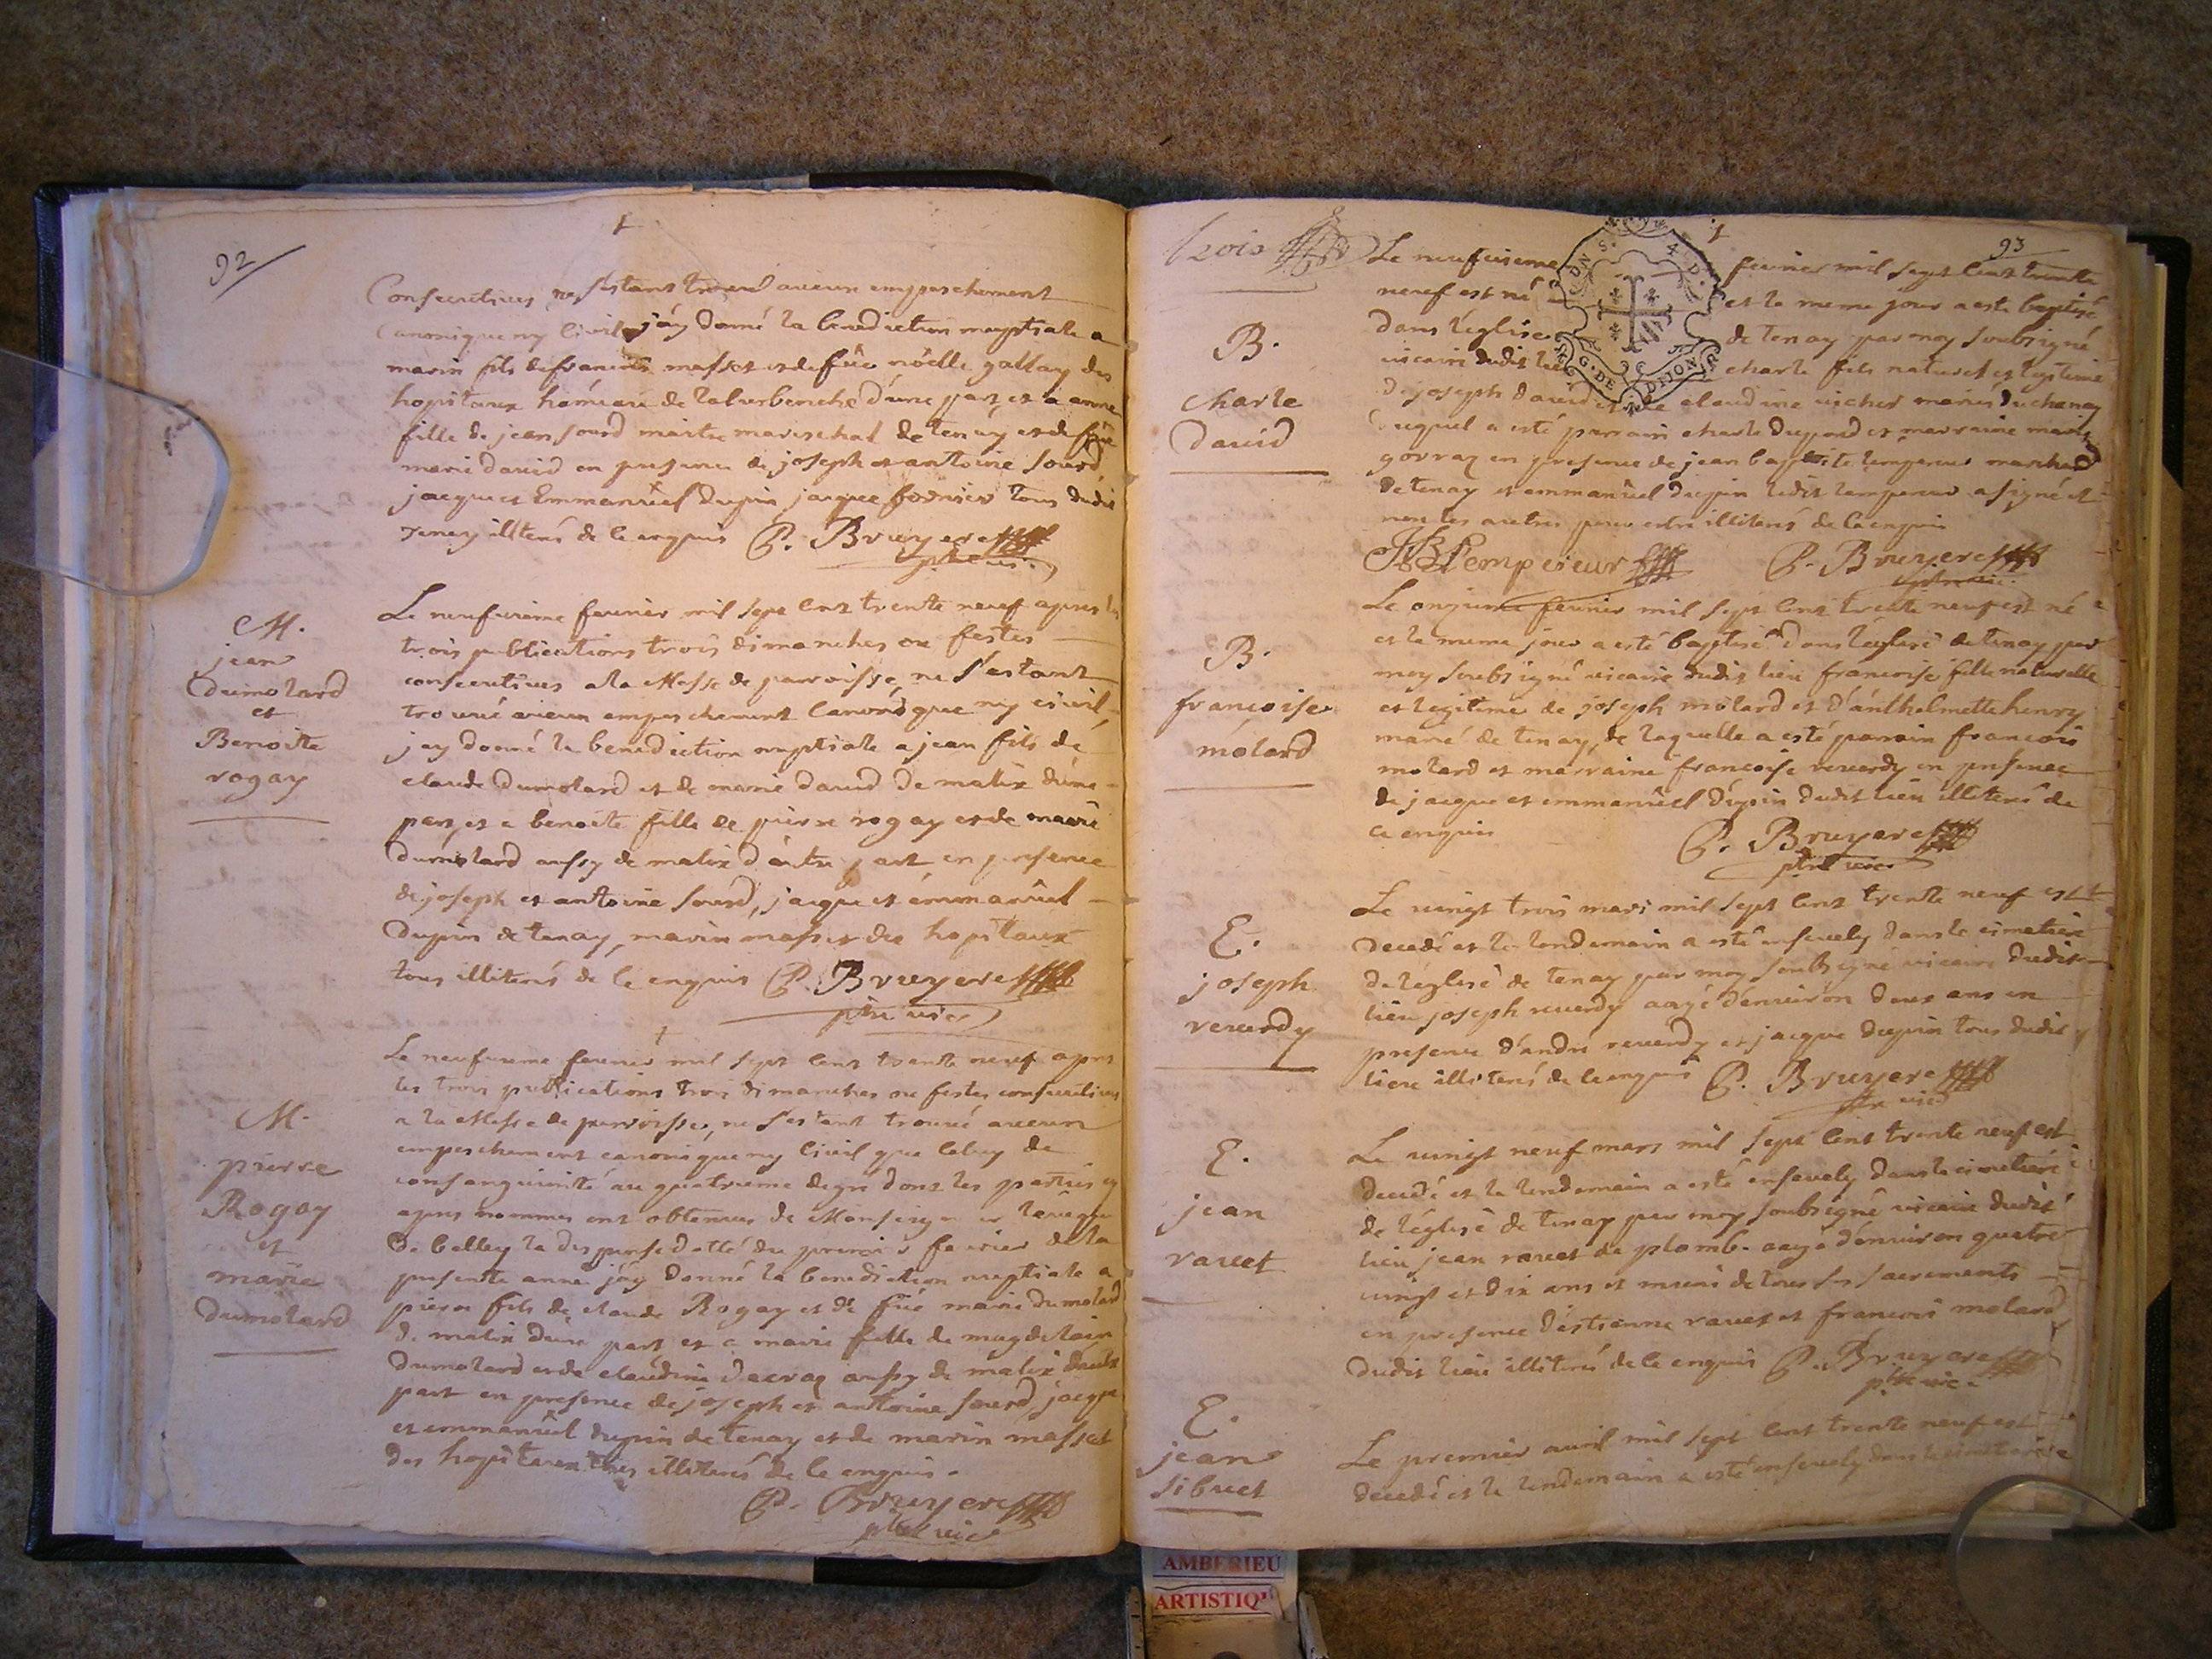 92
Consecutives ne s'estant trouvé aucun empeschement
Canonique ny Civil j'ay donné la benediction nuptiale a
marin fils de francois masset et de füe nöelle gallay des
hopitaux hameau de d'une part et a anne
fille de jean sourd maitre mareschal de tenay et de füe
marie david en presence de joseph et antoine sourd
jacque et Emmanüel dupin jacque tous dudit
Tenay illiterés de ce enquis P. Bruyere
ptre vic.
M.
jean
dumolard
et
Benoite
rogay
Le neufvieme fevrier mil sept cent trente neuf apres les
trois publications trois dimanches ou festes
consecutives a la Messe de parroisse, ne s'estant
trouvé aucun empeschement canonique ny civil,
jay donné la benediction nuptiale a jean fils de
claude dumolard et de marie david de malix d'une
part, et a benoite fille de pierre rogay et de marie
dumolard aussy de malix d'autre part en presence
de joseph et antoine sourd, jacque et emmanüel
dupin de tenay, marin masset des hopitaux
tous illiterés de ce enquis P. Bruyere
ptre vic
M.
pierre
Rogay
et
marie
dumolard
Le neufvieme fevrier mil sept cent trente neuf apres
les trois publications trois dimanches ou festes consecutives
a la Messe de parroisse, ne s'estant trouvé aucun
empeschement canonique ny Civil que celuy de
consanguinité au quatrieme degré dont les parties cy
apres nommes ont obtenus de Monseigneur l'evêque
de belley la dispense datté du premier fevrier de la
presente année j'ay donné la benediction nuptiale a
pierre fils de claude Rogay et de füe marie dumolard
de malix d'une part et a marie fille de magdelain
dumolard et de claudine aussy de malix d'autre
part en presence de joseph et antoine sourd, jacque
et emmanüel dupin de tenay et de marin masset
des hopitaux tous illiterés de ce enquis.
P. Bruyere
ptre vic
93
trois
B.
charle
david
Le neufvieme fevrier mil sept cent trente
neuf est né et le meme jour a esté baptisé
dans l'église de tenay par moy soubsigné
vicaire dudit lieu charle fils naturel et legitime
de joseph david et de claudine vicher mariés du chanay
duquel a esté parrain charle dupord et marraine marie
gorraz en presence de jean baptiste lempereur marchand
de tenay et emmanüel dupin ledit lempereur a signé et
non les autres pour estre illiterés de ce enquis
JB Lempereur P. Bruyere
ptre vic.
B.
françoise
molard
Le onzieme fevrier mil sept cent trente neuf est né
et le meme jour a esté baptisé dans l'eglise de tenay par
moy soubsigné vicaire dudit lieu francoise fille naturelle
et legitime de joseph molard et d'anthelmette henry
marié de tenay, de laquelle a esté parrain francois
molard et marraine francoise reverdy en presence
de jacque et emmanüel dupin dudit lieu illiterés de
ce enquis P. Bruyere
ptre vic
E.
joseph
reverdy
Le vingt trois mars mil sept cent trente neuf est
decedé et le lendemain a esté ensevely dans le cimetiere
de l'églisé de tenay par moy soubsigné vicaire dudit
lieu joseph reverdy aagé d'environ deux ans en
presence d'andré reverdy et jacque dupin tous dudit
lieu illiterés de ce enquis P. Bruyere
ptre vic
E.
jean
ravet
Le vingt neuf mars mil sept cent trente neuf est
decedé et le lendemain a esté ensevely dans le cimetiere
de l'églisé de tenay par moy soubsigné vicaire dudit
lieu jean ravet de plomb. aagé d'environ quatre
vingt et dix ans et muni de tous ses sacrements
en presence d'estienne ravet et francois molard
dudit lieu illiterés de ce enquis P. Bruyere
ptre vic.
E.
jean
sibuet
Le premier avril mil sept cent trente neuf est
decedé et le lendemain a esté ensevely dans le cimetiere
G. DE DIJON
AMBERIEU
ARTISTIQ'